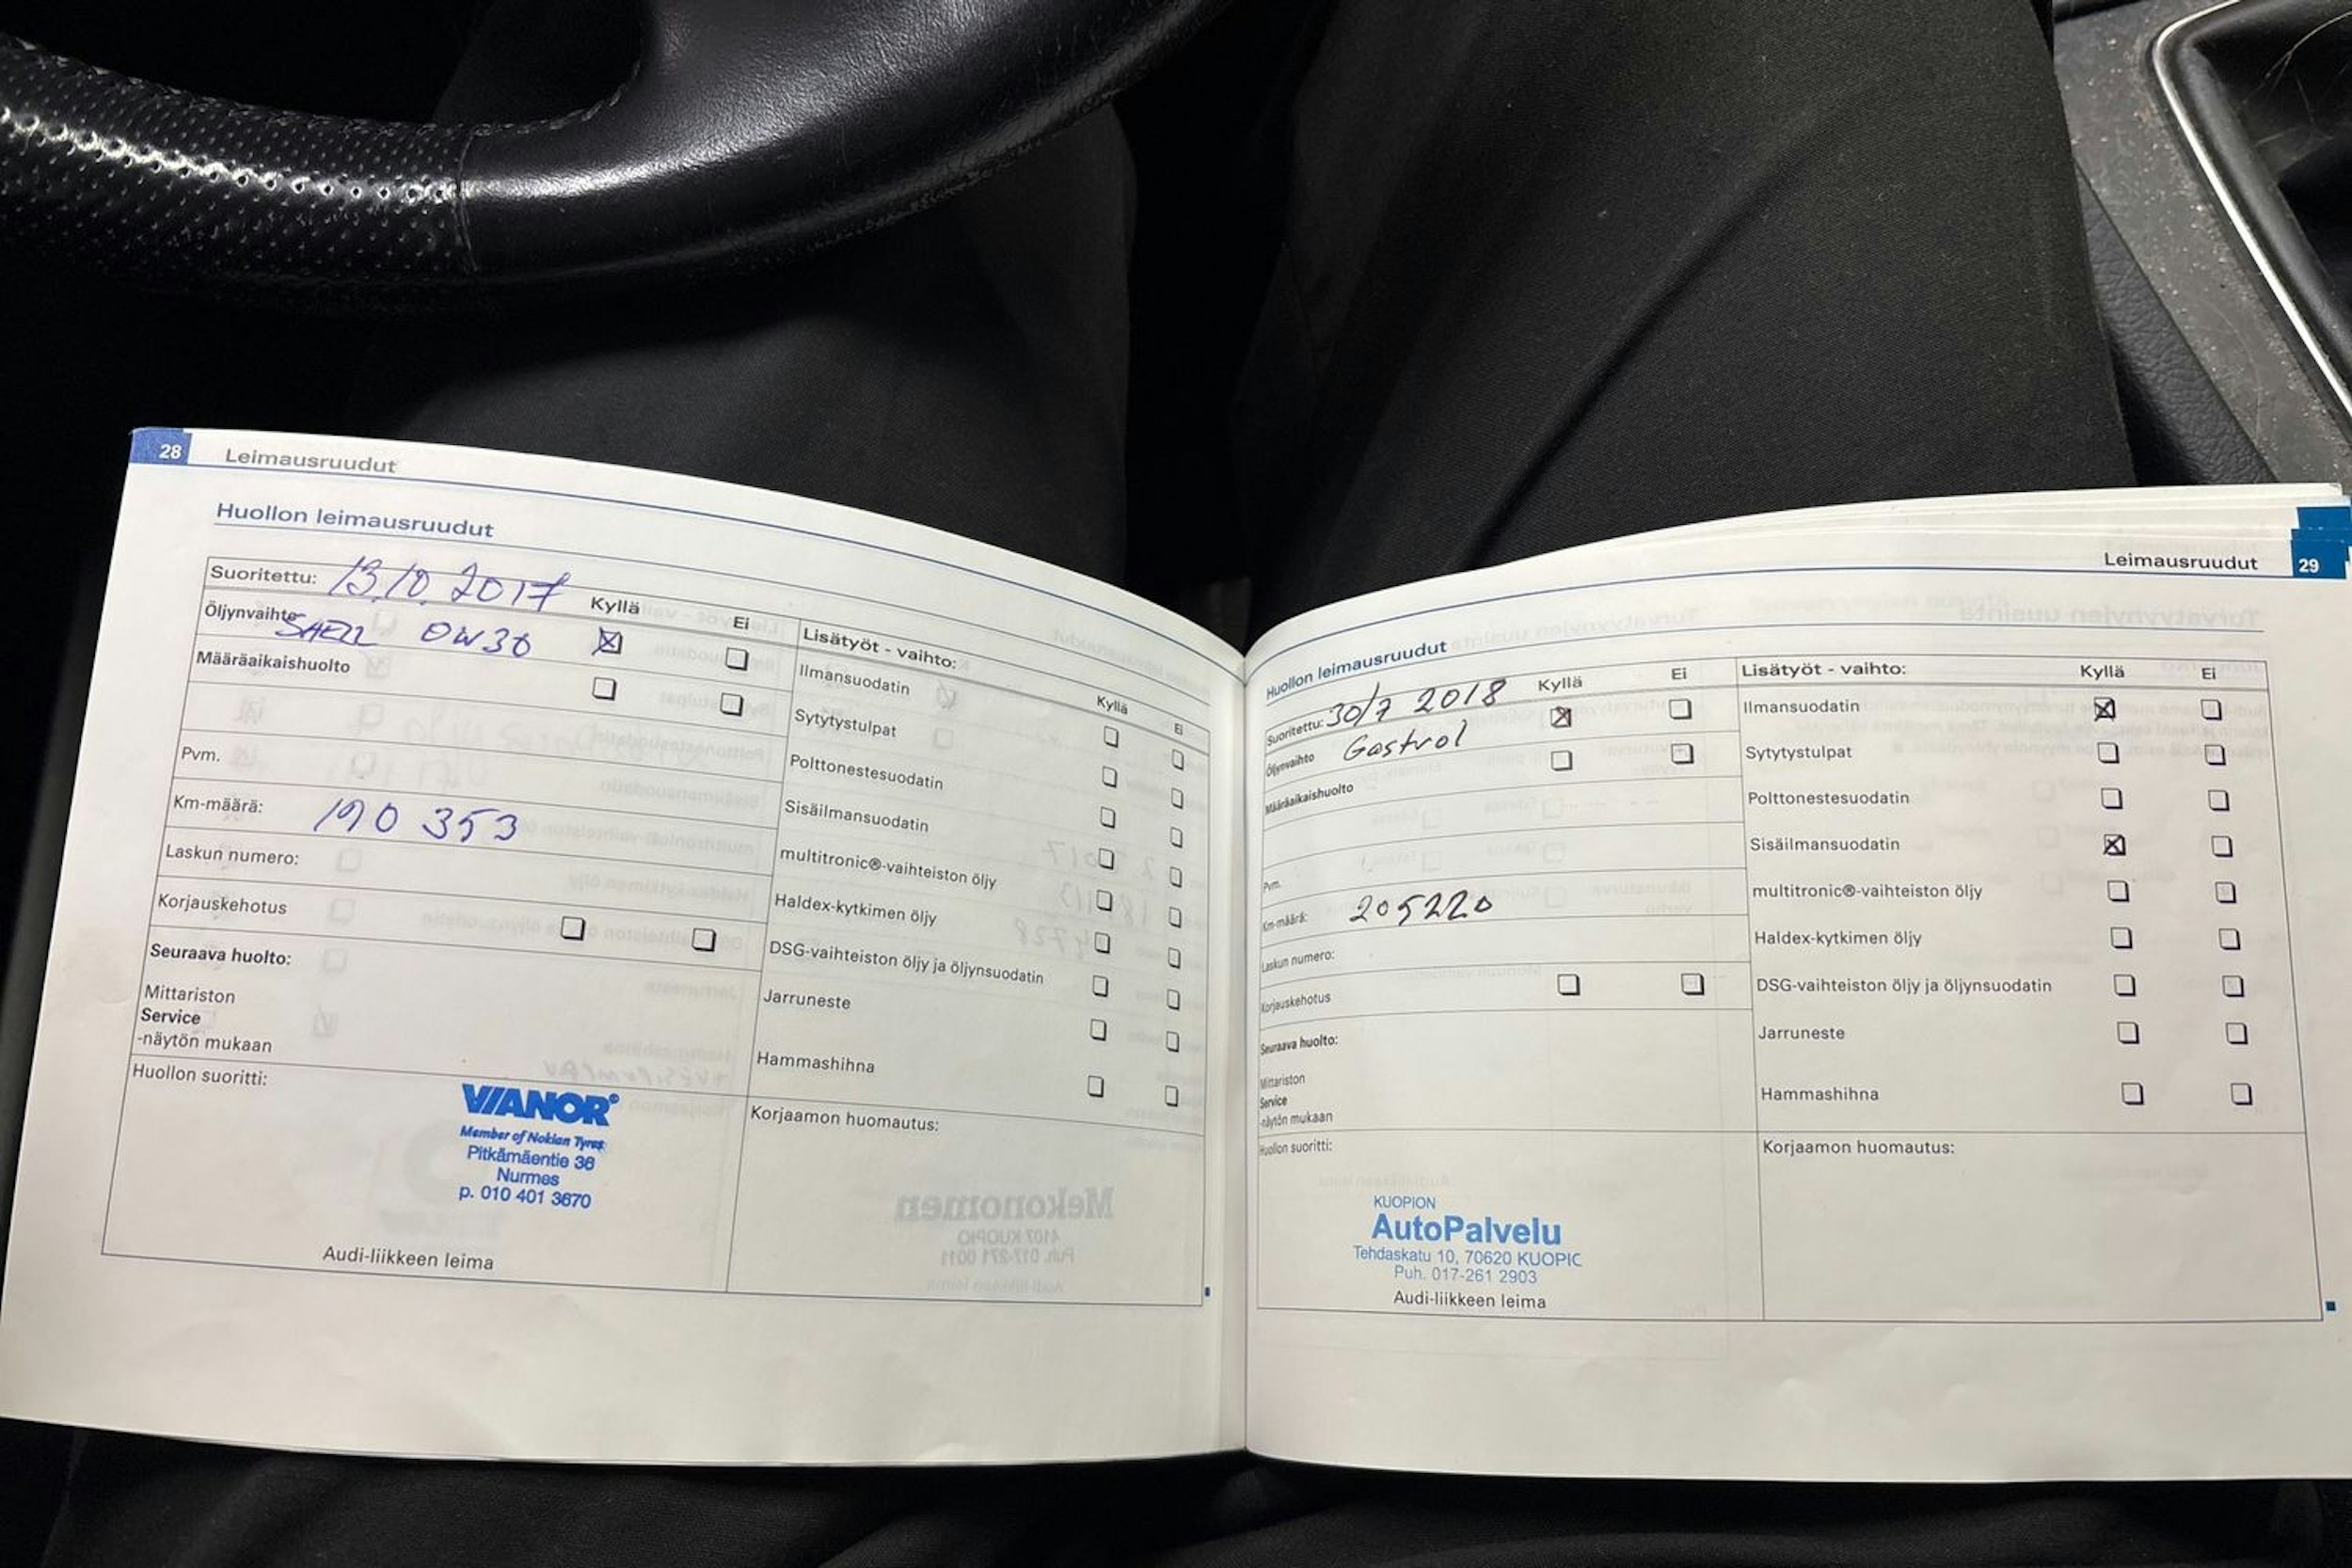 28 Leimausruudut
Huollon leimausruudut
Suoritettu: 13.10.2017 Kyllä Ei
Öljynvaihto SHELL 0W30
Määräaikaishuolto
Pvm.
Km-määrä: 190 353
Laskun numero:
Korjauskehotus
Seuraava huolto:
Mittariston
Service
-näytön mukaan
Huollon suoritti:
VIANOR®
Member of Nokian Tyres
Pitkämäentie 38
Nurmes
p. 010 401 3670
Audi-liikkeen leima
Lisätyöt - vaihto: Kyllä Ei
Ilmansuodatin
Sytytystulpat
Polttonestesuodatin
Sisäilmansuodatin
multitronic®-vaihteiston öljy
Haldex-kytkimen öljy
DSG-vaihteiston öljy ja öljynsuodatin
Jarruneste
Hammashihna
Korjaamon huomautus:
Leimausruudut 29
Huollon leimausruudut
Suoritettu: 30/7 2018 Kyllä Ei
Öljynvaihto Castrol
Määräaikaishuolto
Pvm.
Km-määrä: 205220
Laskun numero:
Korjauskehotus
Seuraava huolto:
Mittariston
Service
-näytön mukaan
Huollon suoritti:
KUOPION
AutoPalvelu
Tehdaskatu 10, 70620 KUOPIO
Puh. 017-261 2903
Audi-liikkeen leima
Lisätyöt - vaihto: Kyllä Ei
Ilmansuodatin
Sytytystulpat
Polttonestesuodatin
Sisäilmansuodatin
multitronic®-vaihteiston öljy
Haldex-kytkimen öljy
DSG-vaihteiston öljy ja öljynsuodatin
Jarruneste
Hammashihna
Korjaamon huomautus: